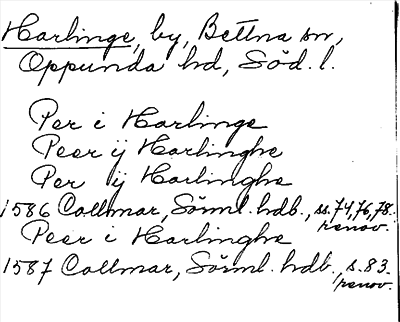 Harlinge, by, Bettna sn,
Oppunda hd, Söd. l.
Per i Harlinge
Peer ij Harlinghe
Per ij Harlinghe
1586 Collmar, Sörml. hdb., ss. 74, 76, 78.
renov.
Peer i Harlinghe
1587 Collmar, Sörml. hdb., s. 83.
renov.